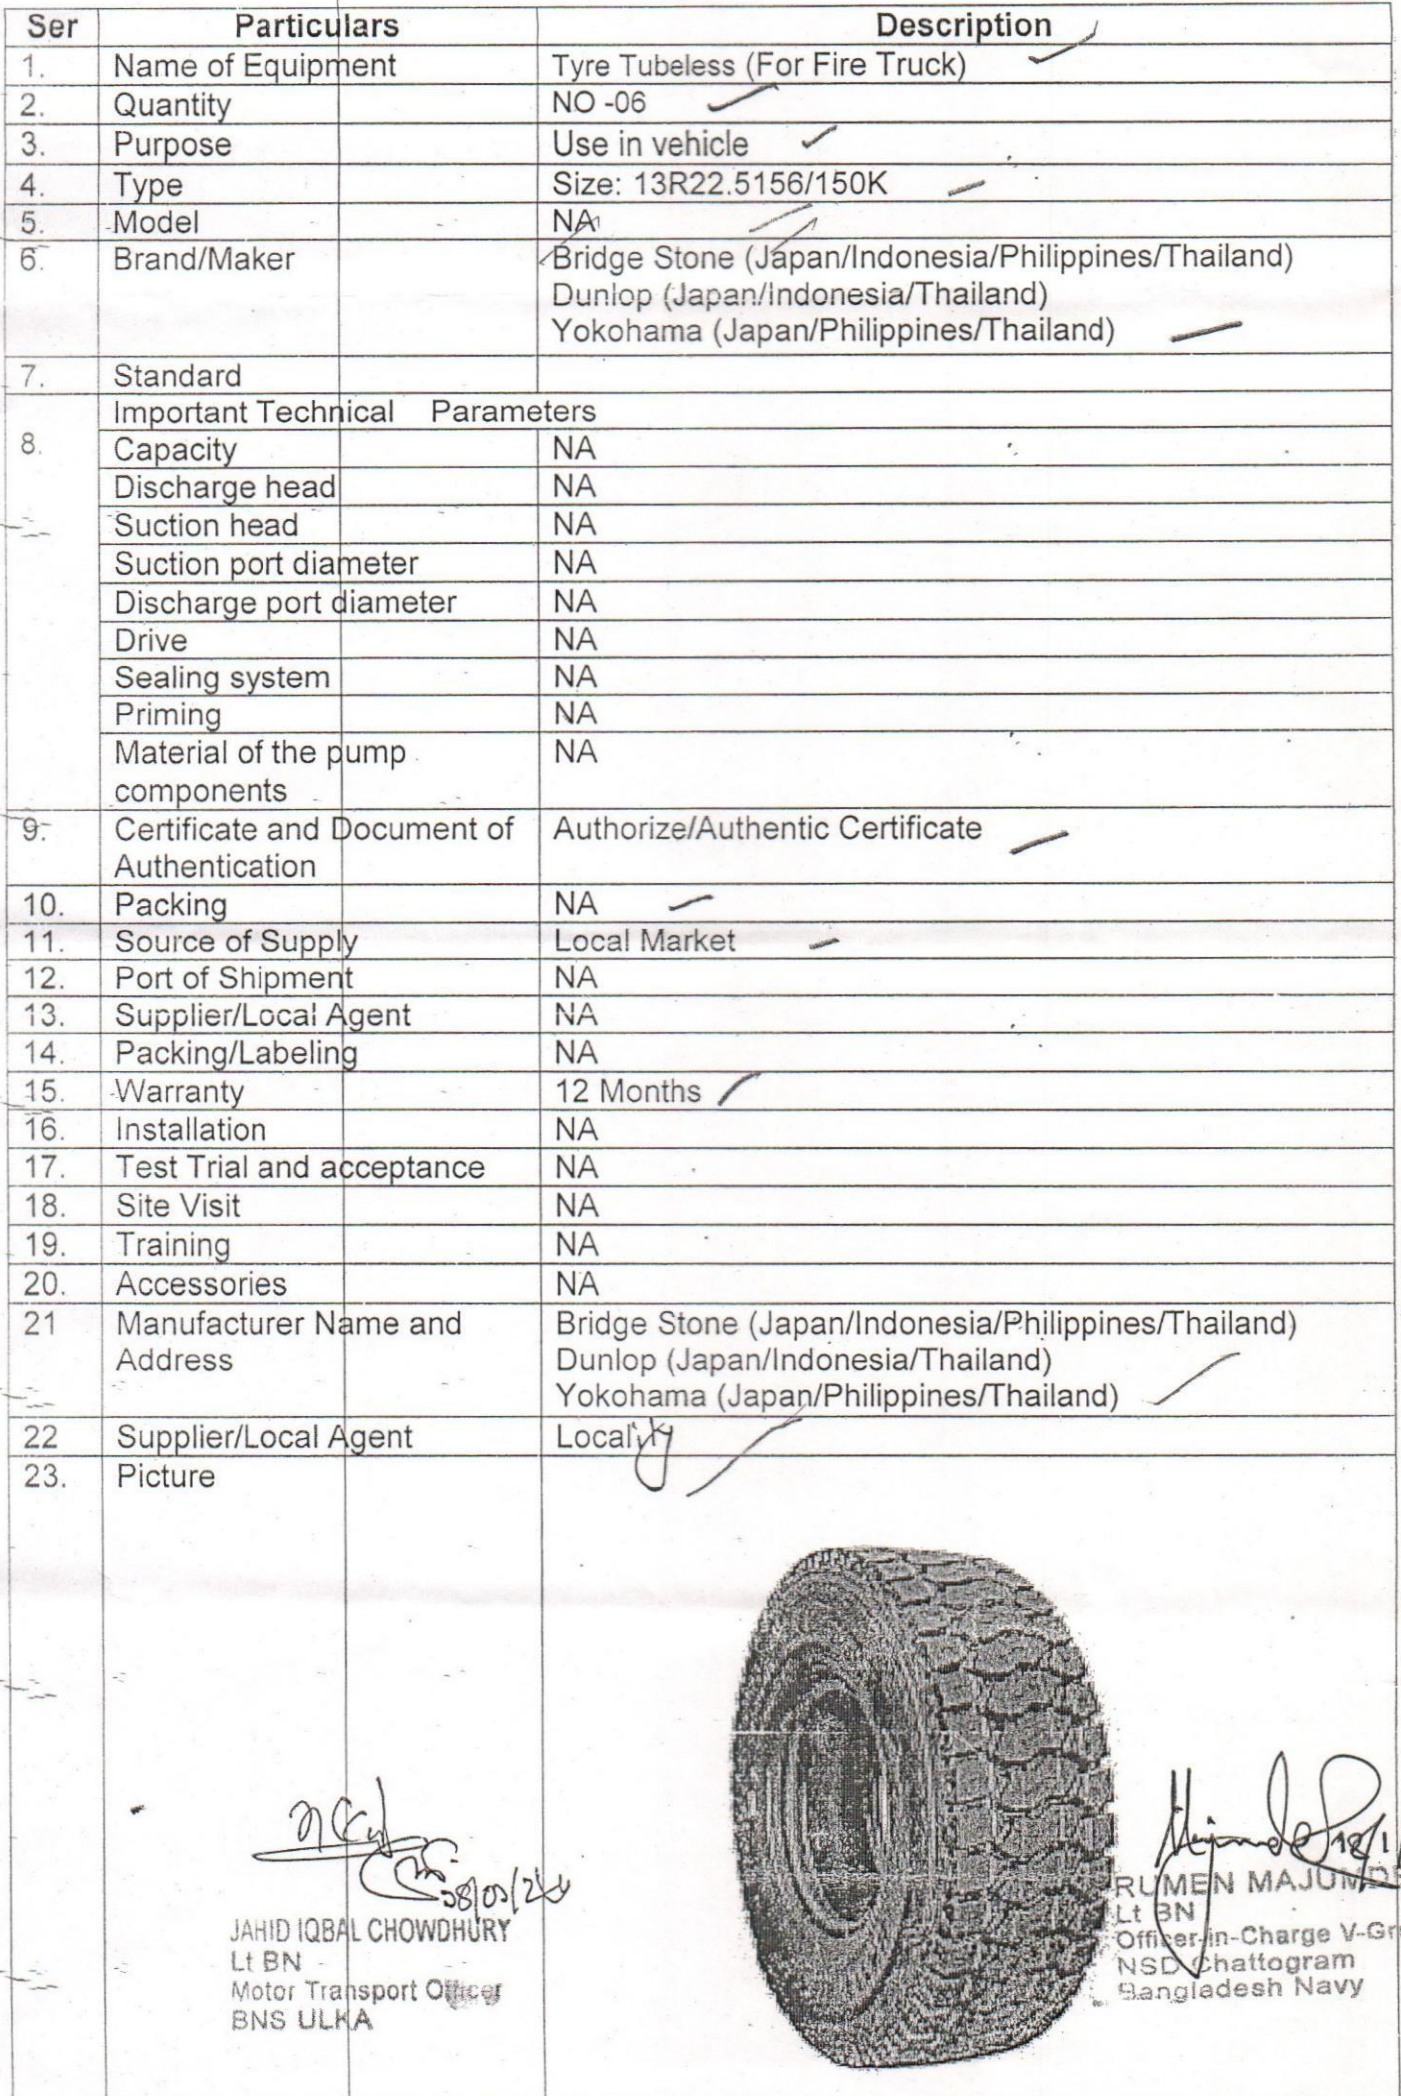 Ser Particulars Description
1. Name of Equipment Tyre Tubeless (For Fire Truck)
2. Quantity NO -06
3. Purpose Use in vehicle
4. Type Size: 13R22.5156/150K
5. Model NA
6. Brand/Maker Bridge Stone (Japan/Indonesia/Philippines/Thailand)
Dunlop (Japan/Indonesia/Thailand)
Yokohama (Japan/Philippines/Thailand)
7. Standard
Important Technical Parameters
8. Capacity NA
Discharge head NA
Suction head NA
Suction port diameter NA
Discharge port diameter NA
Drive NA
Sealing system NA
Priming NA
Material of the pump NA
components
9. Certificate and Document of Authorize/Authentic Certificate
Authentication
10. Packing NA
11. Source of Supply Local Market
12. Port of Shipment NA
13. Supplier/Local Agent NA
14. Packing/Labeling NA
15. Warranty 12 Months
16. Installation NA
17. Test Trial and acceptance NA
18. Site Visit NA
19. Training NA
20. Accessories NA
21 Manufacturer Name and Bridge Stone (Japan/Indonesia/Philippines/Thailand)
Address Dunlop (Japan/Indonesia/Thailand)
Yokohama (Japan/Philippines/Thailand)
22 Supplier/Local Agent Locality
23. Picture
JAHID IQBAL CHOWDHURY
Lt BN
Motor Transport Officer
BNS ULKA
RUMEN MAJUMDE
Lt BN
Officer-in-Charge V-Gr
NSD Chattogram
Bangladesh Navy